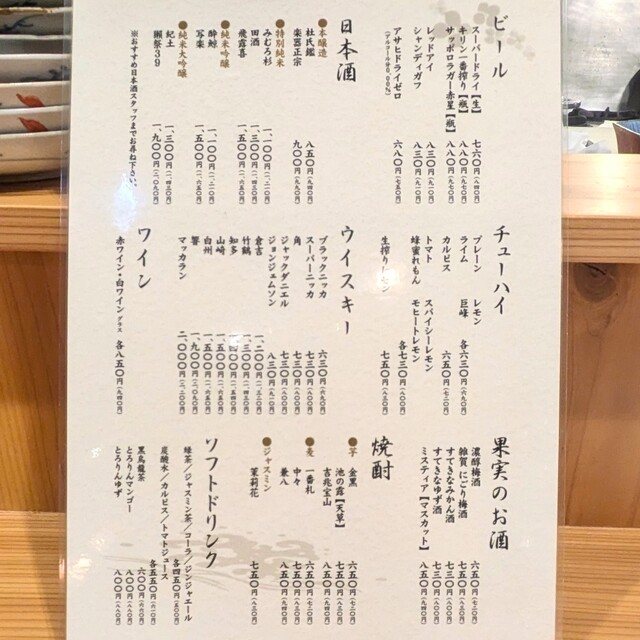 ビール
スーパードライ【生】 七六〇円(八四〇)
キリン一番搾り【瓶】 八八〇円(九七〇)
サッポロラガー赤星【瓶】 八八〇円(九七〇)
レッドアイ 八三〇円(九一〇)
シャンディガフ 八三〇円(九一〇)
アサヒドライゼロ 六八〇円(七五〇)
(アルコール分0.00%)
日本酒
●本醸造
杜氏鑑 八五〇円(九四〇)
楽器正宗 九〇〇円(九九〇)
●特別純米
みむろ杉 一、一〇〇円(一、二一〇)
田酒 一、三〇〇円(一、四三〇)
飛露喜 一、五〇〇円(一、六五〇)
●純米吟醸
酔鯨 一、一〇〇円(一、二一〇)
写楽 一、五〇〇円(一、六五〇)
●純米大吟醸
紀土 一、三〇〇円(一、四三〇)
獺祭39 一、九〇〇円(二、〇九〇)
※おすすめ日本酒スタッフまでお尋ね下さい。
チューハイ
プレーン レモン
ライム 巨峰 各六三〇円(六九〇)
カルピス 六五〇円(七二〇)
トマト スパイシーレモン
蜂蜜れもん モヒートレモン 各七三〇円(八〇〇)
生搾りレモン 七五〇円(八三〇)
ウイスキー
ブラックニッカ 六三〇円(六九〇)
スーパーニッカ 七三〇円(八〇〇)
角 七三〇円(八〇〇)
ジャックダニエル 七三〇円(八〇〇)
ジョンジェムソン 八三〇円(九一〇)
倉吉 一、二〇〇円(一、三二〇)
竹鶴 一、三〇〇円(一、四三〇)
知多 一、三〇〇円(一、四三〇)
山崎 一、五〇〇円(一、六五〇)
白州 一、五〇〇円(一、六五〇)
響 一、九〇〇円(二、〇九〇)
マッカラン 二、〇〇〇円(二、二〇〇)
ワイン
赤ワイン・白ワイン グラス 各八五〇円(九四〇)
果実のお酒
濃醇梅酒 六五〇円(七二〇)
雑賀 にごり梅酒 七五〇円(八三〇)
すてきなみかん酒 七三〇円(八〇〇)
すてきなゆず酒 七三〇円(八〇〇)
ミスティア【マスカット】 八五〇円(九四〇)
焼酎
●芋
金黒 六五〇円(七二〇)
池の露【天草】 七五〇円(八三〇)
吉兆宝山 八五〇円(九四〇)
●麦
一番札 六五〇円(七二〇)
中々 七五〇円(八三〇)
兼八 八五〇円(九四〇)
●ジャスミン
茉莉花 七五〇円(八三〇)
ソフトドリンク
緑茶/ジャスミン茶/コーラ/ジンジャエール 各四五〇円(五〇〇)
炭酸水/カルピス/トマトジュース 各五五〇円(六一〇)
黒烏龍茶 六〇〇円(六六〇)
とろりんマンゴー 八〇〇円(八八〇)
とろりんゆず 八〇〇円(八八〇)